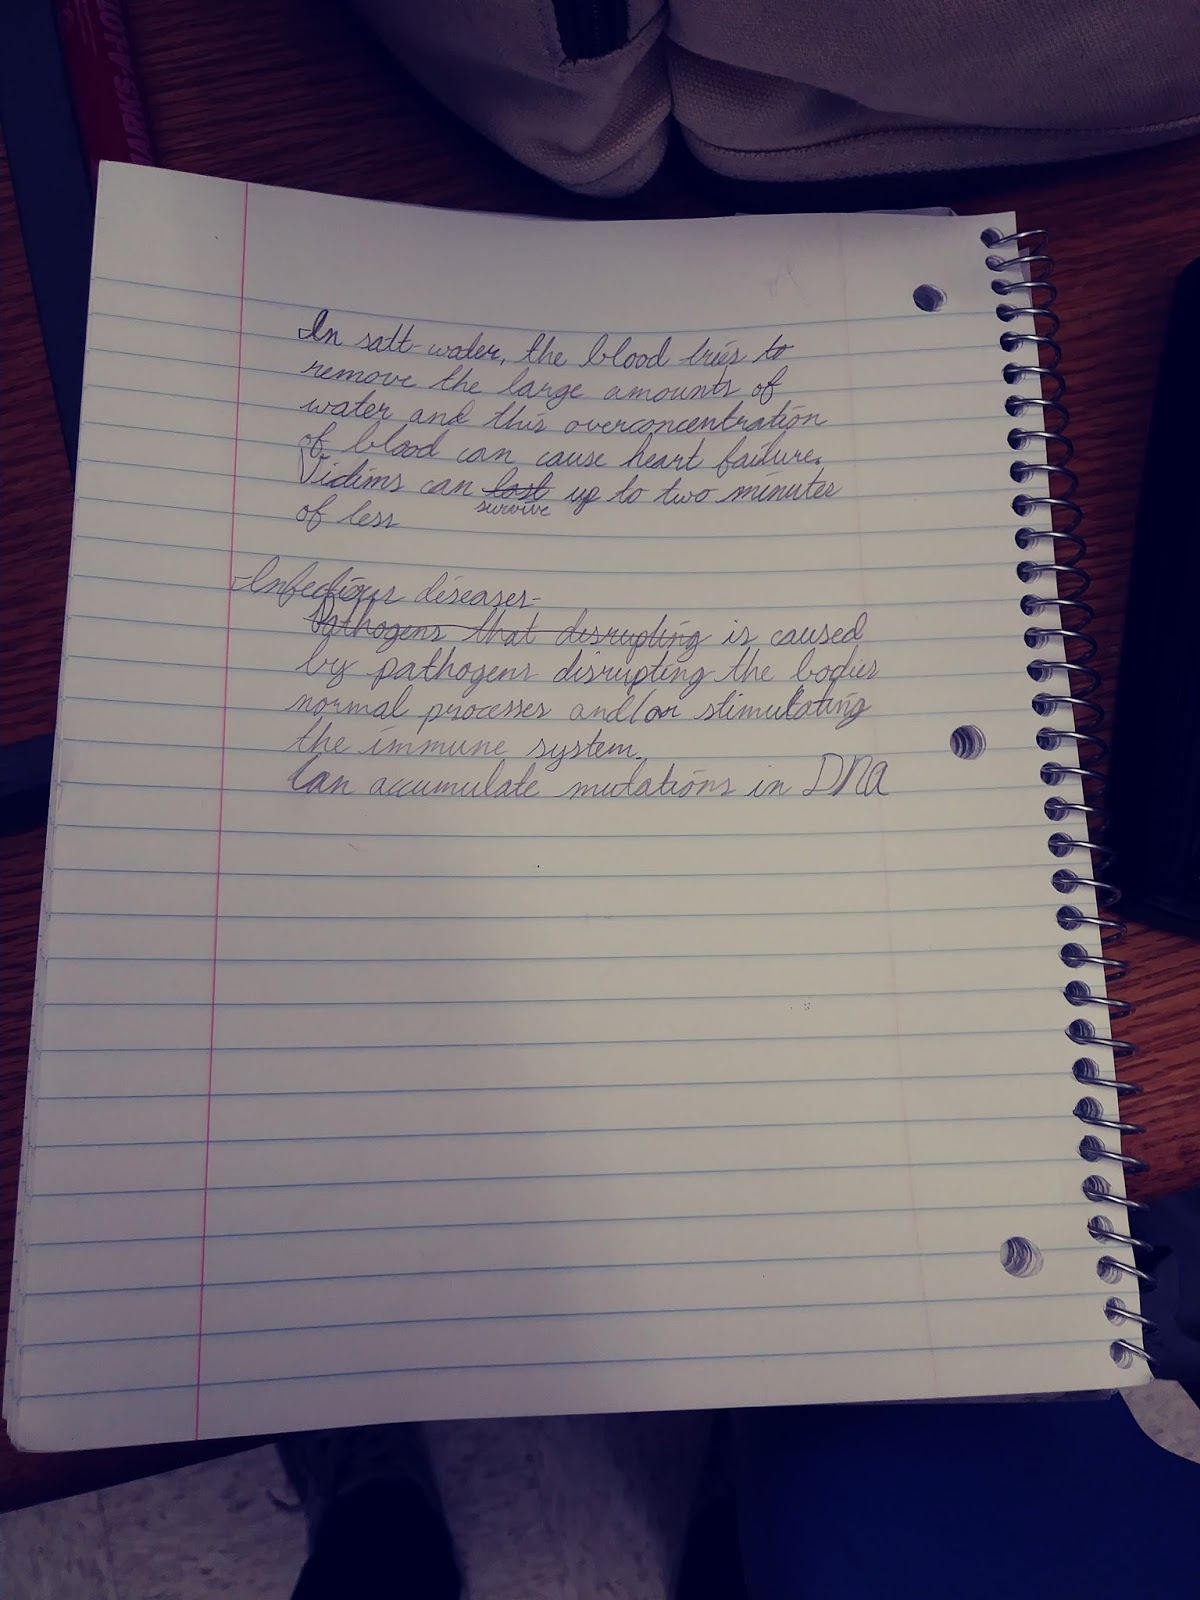 MARKS-A-LOT
In salt-water, the blood tries to
remove the large amounts of
water and this overconcentration
of blood can cause heart failure.
Victims can last up to two minutes
survive
of less
-Infectious diseases-
Pathogens that disrupting is caused
by pathogens disrupting the bodies
normal processes and/or stimulating
the immune system.
Can accumulate mutations in DNA